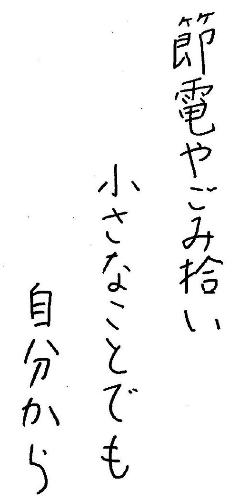 節電やごみ拾い
小さなことでも
自分から